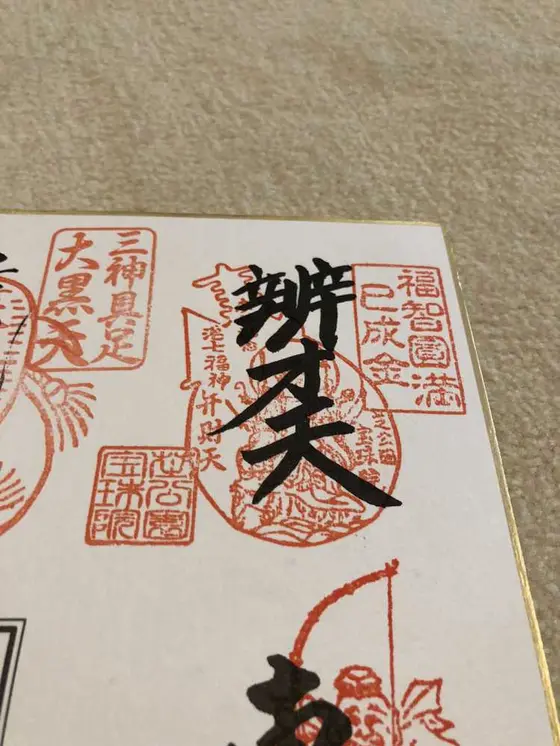 福智圓満
巳成金
辨才天
芝公園
宝珠院
港七福神弁財天
芝公園
宝珠院
三神具足
大黒天